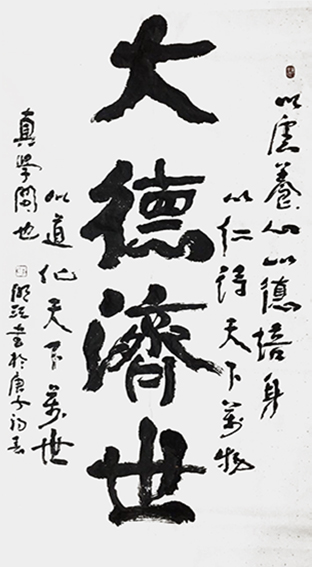 大德濟世
以虛養心以德培身
以仁待天下萬物
以道化天下萬世
真學問也
書於庚子初春